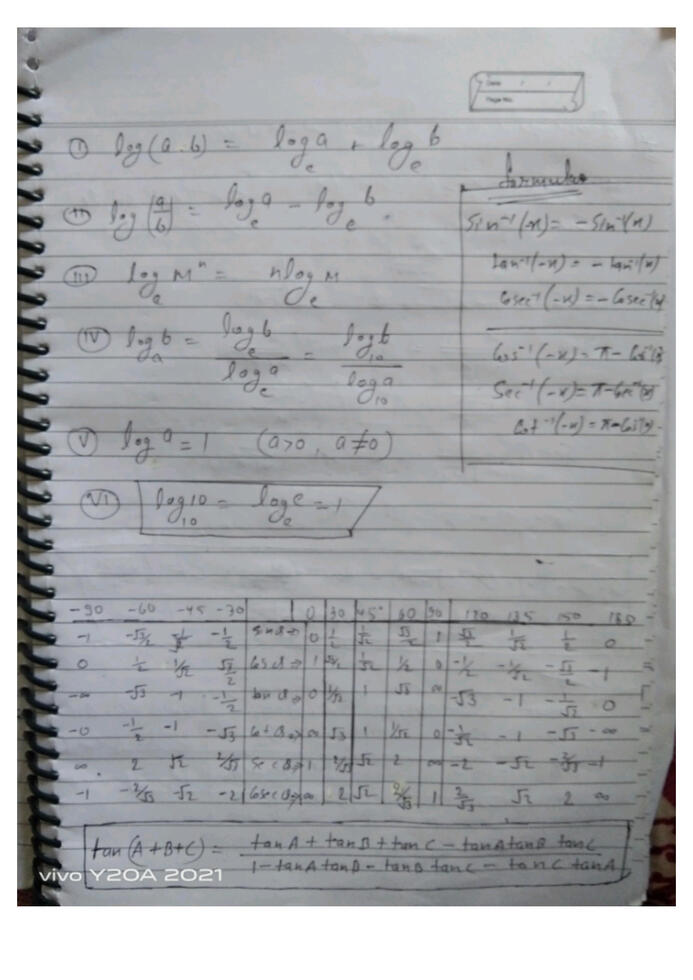 Date / /
Page No.
① log(a.b) = logₑa + logₑb
⑪ log(a/b) = logₑa - logₑb.
Ⅲ logₐMⁿ = n logₑM
Ⅳ logₐb = logₑb / logₑa = log₁₀b / log₁₀a
Ⅴ logₐa = 1 (a>0, a≠0)
Ⅵ log₁₀10 = logₑe = 1
formula
Sin⁻¹(-x) = -Sin⁻¹(x)
tan⁻¹(-x) = -tan⁻¹(x)
Cosec⁻¹(-x) = -Cosec⁻¹(x)
Cos⁻¹(-x) = π - Cos⁻¹(x)
Sec⁻¹(-x) = π - Sec⁻¹(x)
Cot⁻¹(-x) = π - Cot⁻¹(x)
-90 -60 -45 -30 0 30 45° 60 90 120 135 150 180
-1 -√3/2 1/√2 -1/2 sinθ→ 0 1/2 1/√2 √3/2 1 √3/2 1/√2 1/2 0
0 1/2 1/√2 √3/2 Cosθ→ 1 √3/2 1/√2 1/2 0 -1/2 -1/√2 -√3/2 -1
-∞ -√3 -1 -1/2 tanθ→ 0 1/√3 1 √3 ∞ -√3 -1 -1/√2 0
-0 -1/2 -1 -√3 Cotθ→ ∞ √3 1 1/√2 0 -1/√2 -1 -√3 -∞
∞ 2 √2 2/√3 Secθ→ 1 2/√3 √2 2 ∞ -2 -√2 -2/√3 -1
-1 -2/√3 -√2 -2 Cosecθ→ ∞ 2 √2 2/√3 1 2/√3 √2 2 ∞
tan(A+B+C) = tanA + tanB + tanC - tanA tanB tanC / 1 - tanA tanB - tanB tanC - tanC tanA
vivo Y20A 2021